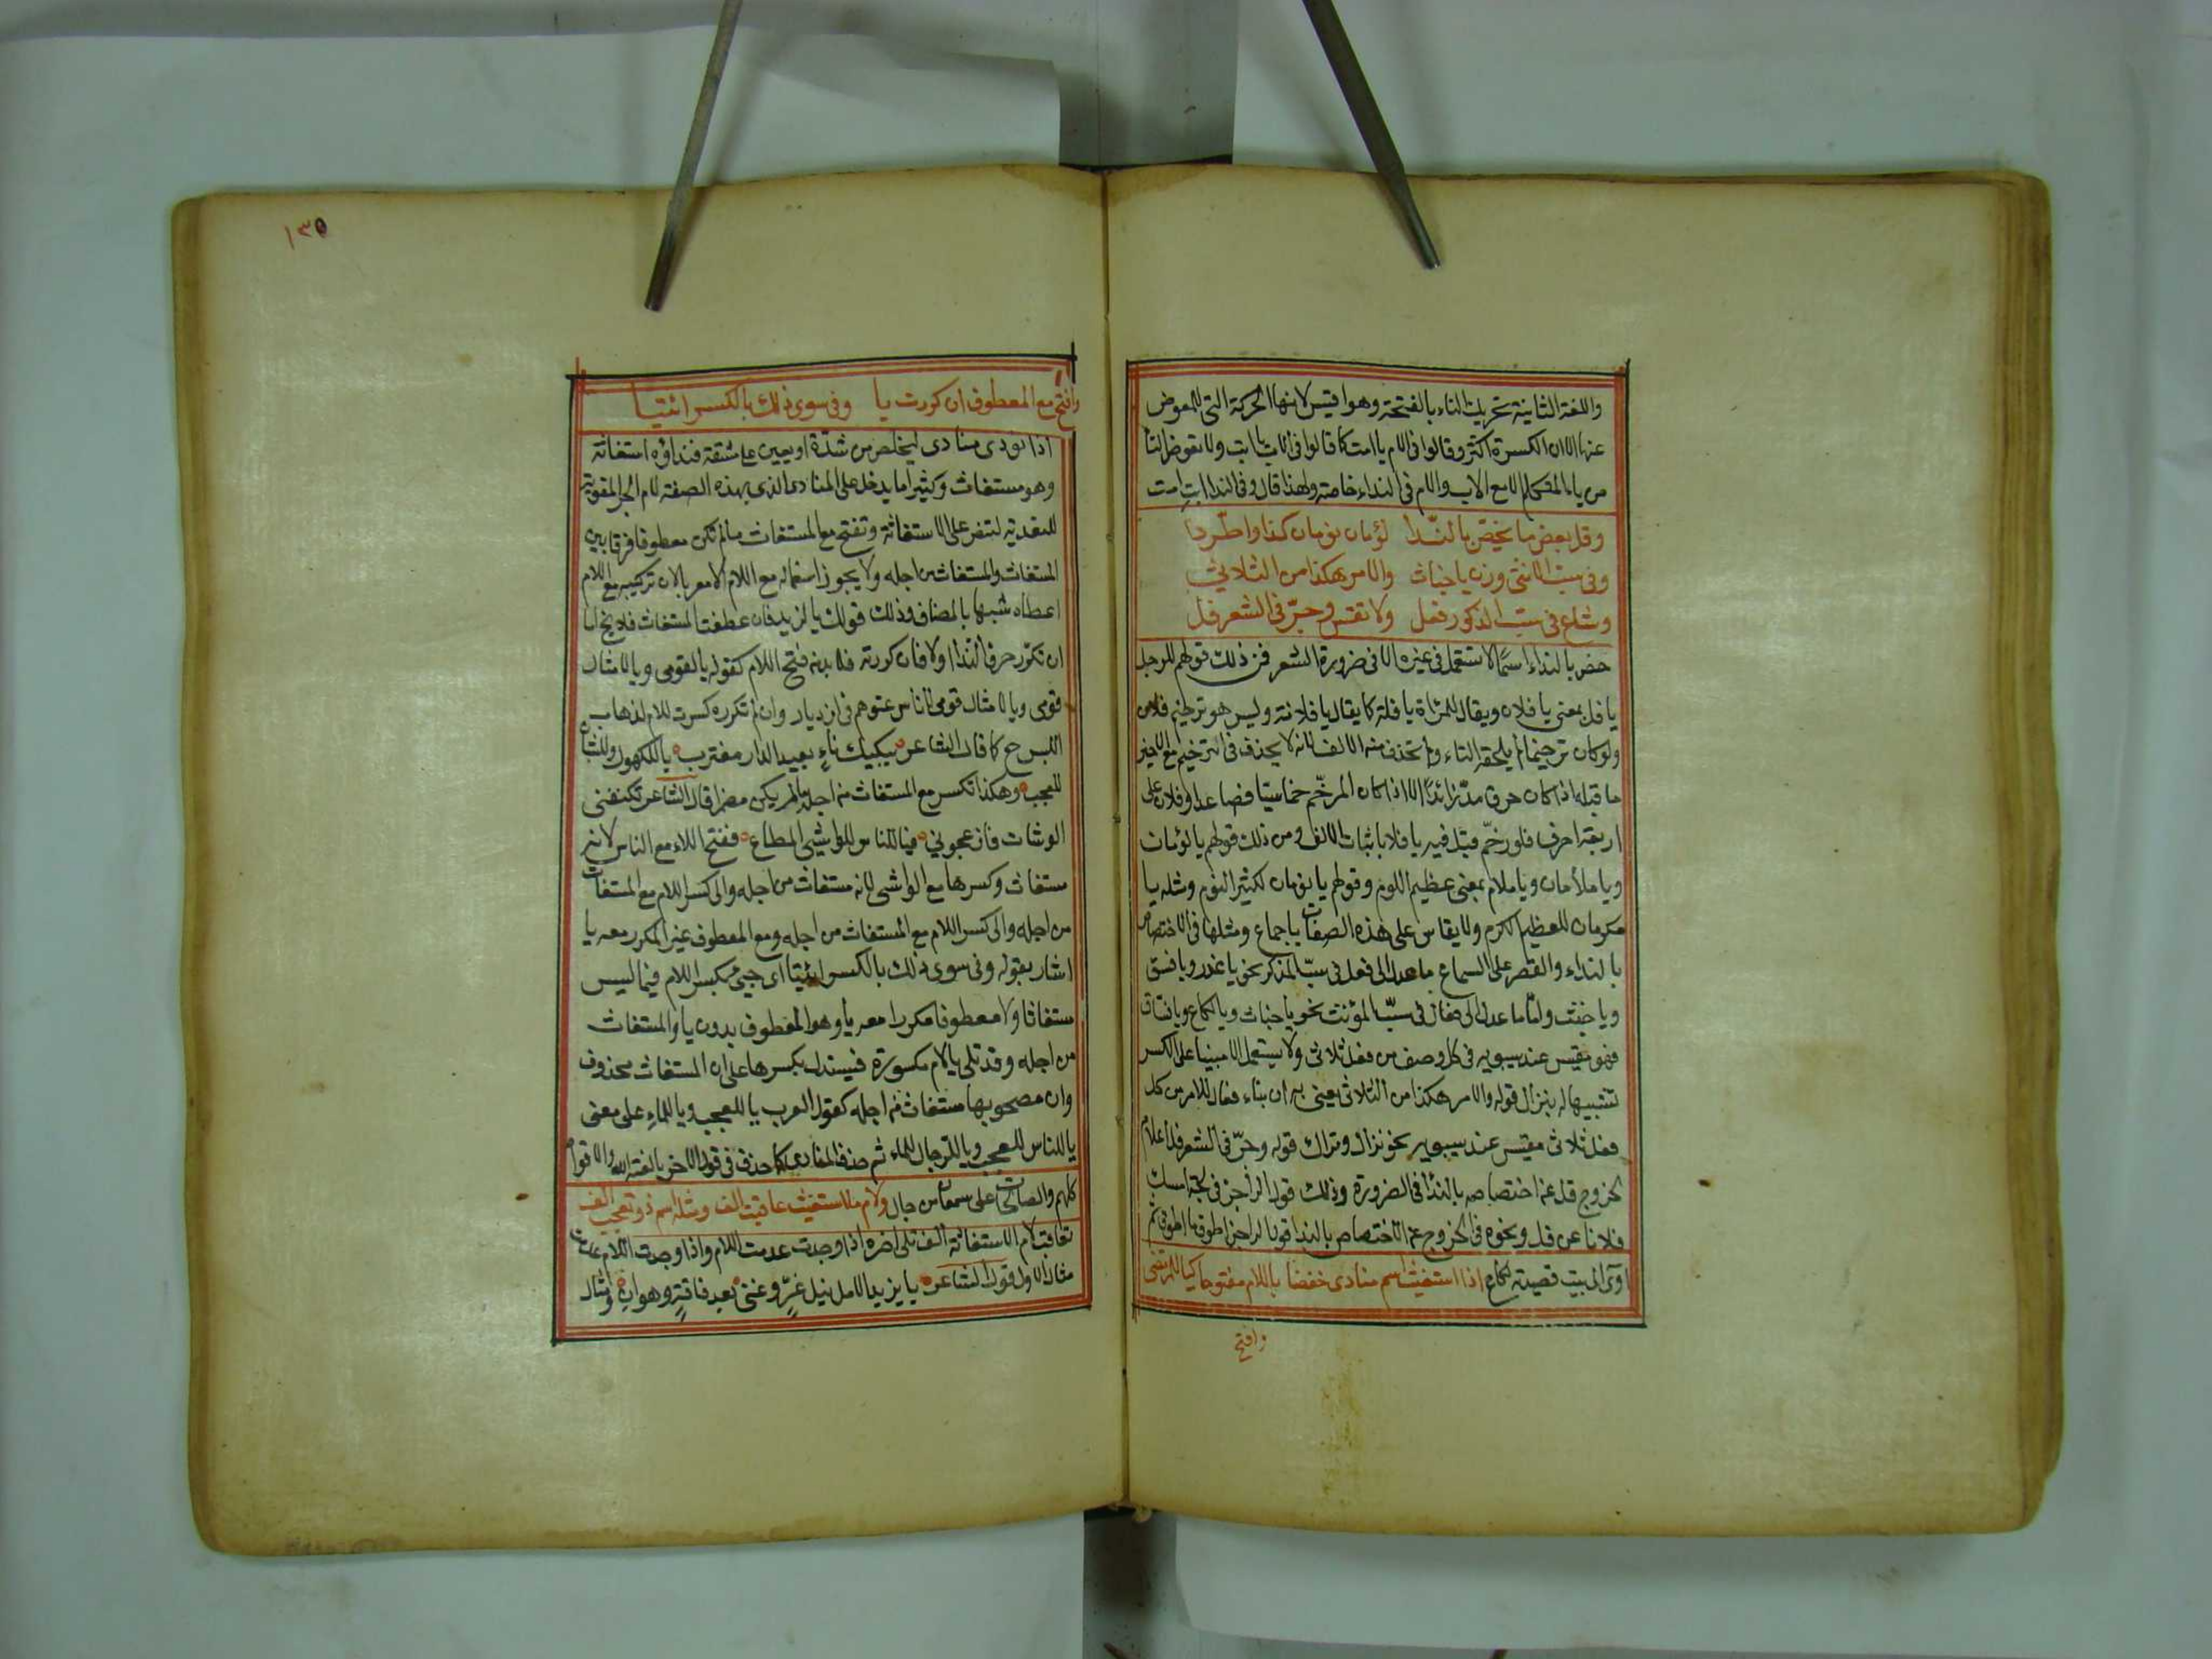 واللغة الثانية تحريك التاء بالفتحة وهو اقيس لانها الحركة التى للمعوض
عنها الا ان الكسرة اكثر وقالوا فى الام يا امت كما قالوا فى الاب يا ابت ولا تعوض التا
من ياء المتكلم الا مع الاب والام فى النداء خاصة ولهذا قال وفى الندا ابت امت
وفل بعض ما يخص بالندا لؤمان نومان كذا واطردا
وفى سب الانثى وزن يا خباث والامر هكذا من الثلاثي
وشاع فى سب الذكور فعل ولا تقس وجر فى الشعر فل
خص بالنداء اسما لا تستعمل فى غيره الا فى ضرورة الشعر فمن ذلك قولهم للرجل
يا فل بمعنى يا فلان ويقال للمراة يا فلة كما يقال يا فلانة وليس هو ترخيم فلان
ولو كان ترخيما لم يلحقه التاء ولم تحذف منه الالف لانه لا يحذف فى الترخيم مع الاخير
ما قبله اذا كان حرف مد زائدا الا اذا كان المرخم خماسيا فصاعدا وفلان على
اربعة احرف فلو رخم قيل فيه يا فلا باثبات الالف ومن ذلك قولهم يا لؤمان
ويا ملأمان ويا ملام بمعنى عظيم اللوم وقولهم يا نومان لكثير النوم ومثله يا
مكرمان للعظيم الكرم ولا يقاس على هذه الصفات باجماع ومثلها فى الاختصاص
بالنداء والقصر على السماع ما عدل الى فعل فى سب المذكر نحو يا غدر ويا فسق
ويا خبث واما ما عدل الى فعال فى سب المؤنث نحو يا خباث ويا لكاع ويا فساق
فهو مقيس عند سيبويه فى كل وصف من فعل ثلاثى ولا يستعمل الا مبنيا على الكسر
تشبيها له بنزال قوله والامر هكذا من الثلاثى يعنى به ان بناء فعال للامر من كل
فعل ثلاثى مقيس عند سيبويه نحو نزال وتراك قوله وجر فى الشعر فل اعلام
بخروج فل عن اختصاصه بالندا فى الضرورة وذلك قول الراجز فى لجة امسك
فلانا عن فل ونحوه فى الخروج عن الاختصاص بالندا قول الراجز اطوف ما اطوف ثم
اوى الى بيت قعيدته لكاع اذا استغيث اسم منادى خفضا باللام مفتوحا كيا للمرتضى
وافتح
١٣٥
وافتح مع المعطوف ان كررت يا وفى سوى ذلك بالكسر ائتيا
اذا نودى منادى ليخلص من شدة او يعين على مشقة فنداؤه استغاثة
وهو مستغاث وكثيرا ما يدخل على المنادى الذى بهذه الصفة لام الجر المقوية
للتعدية لتنص على الاستغاثة وتفتح مع المستغاث ما لم تكن معطوفا فرقا بين
المستغاث والمستغاث من اجله ولا يجوز استعماله مع اللام الا معربا لان تركيبه مع اللام
اعطاه شبها بالمضاف وذلك قولك يا لزيد فان عطفت المستغاث فلا يخ اما
ان تكرر حرف الندا اولا فان كررته فلا بد من فتح اللام كقوله يا لقومى ويا لامثال
قومى ويا لامثال قومى لاناس عتوهم فى ازدياد وان لم تكرره كسرت اللام لذهاب
اللبس ح كما قال الشاعر يبكيك ناء بعيد الدار مغترب يا للكهول وللشبان
للعجب وهكذا تكسر مع المستغاث من اجله ما لم يكن مضمرا قال الشاعر تكنفنى
الوشات فازعجونى فيا للناس للواشى المطاع ففتح اللام مع الناس لانه
مستغاث وكسرها مع الواشى لانه مستغاث من اجله والى كسر اللام مع المستغاث
من اجله والى كسر اللام مع المستغاث من اجله ومع المعطوف غير المكرر معه يا
اشار بقوله وفى سوى ذلك بالكسر ائتيا اى جئ بكسر اللام فيما ليس
مستغاثا ولا معطوفا مكررا معه يا وهو المعطوف بدون يا والمستغاث
من اجله وقد تلى يا لام مكسورة فيستدل بكسرها على ان المستغاث محذوف
وان مصحوبها مستغاث من اجله كقول العرب يا للعجب ويا للماء على معنى
يا للناس للعجب ويا للرجال للماء ثم حذف المنادى كما حذف فى قول الاخر يا لعنة الله والاقوام
كلهم والصالحين على سمعان من جار ولام ما استغيث عاقبت الف ومثله اسم ذو تعجب الف
تعاقب لام الاستغاثة الف تلى اخره اذا وجدت عدمت اللام واذا وجدت اللام عدمت
مثال الاول قول الشاعر يا يزيدا لامل نيل عز وغنى بعد فاقة وهوان ومثال